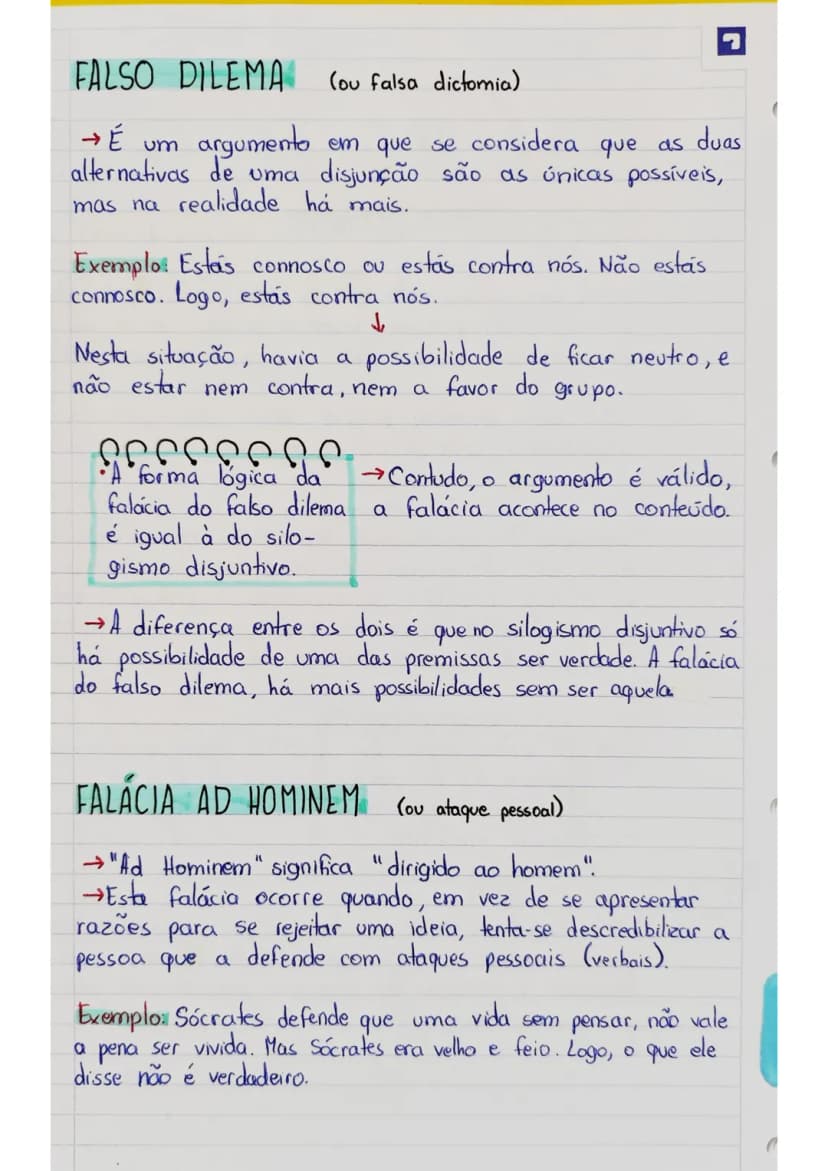 7
FALSO DILEMA (ou falsa dictomia)
→ É um argumento em que se considera que as duas
alternativas de uma disjunção são as únicas possíveis,
mas na realidade há mais.
Exemplo: Estás connosco ou estás contra nós. Não estás
connosco. Logo, estás contra nós.
↓
Nesta situação, havia a possibilidade de ficar neutro, e
não estar nem contra, nem a favor do grupo.
•A forma lógica da
falácia do falso dilema
é igual à do silo-
gismo disjuntivo.
→ Contudo, o argumento é válido,
a falácia acontece no conteúdo.
→ A diferença entre os dois é que no silogismo disjuntivo só
há possibilidade de uma das premissas ser verdade. A falácia
do falso dilema, há mais possibilidades sem ser aquela
FALÁCIA AD HOMINEM (ou ataque pessoal)
→ "Ad Hominem" significa "dirigido ao homem".
→ Esta falácia ocorre quando, em vez de se apresentar
razões para se rejeitar uma ideia, tenta-se descredibilizar a
pessoa que a defende com ataques pessoais (verbais).
Exemplo: Sócrates defende que uma vida sem pensar, não vale
a pena ser vivida. Mas Sócrates era velho e feio. Logo, o que ele
disse não é verdadeiro.